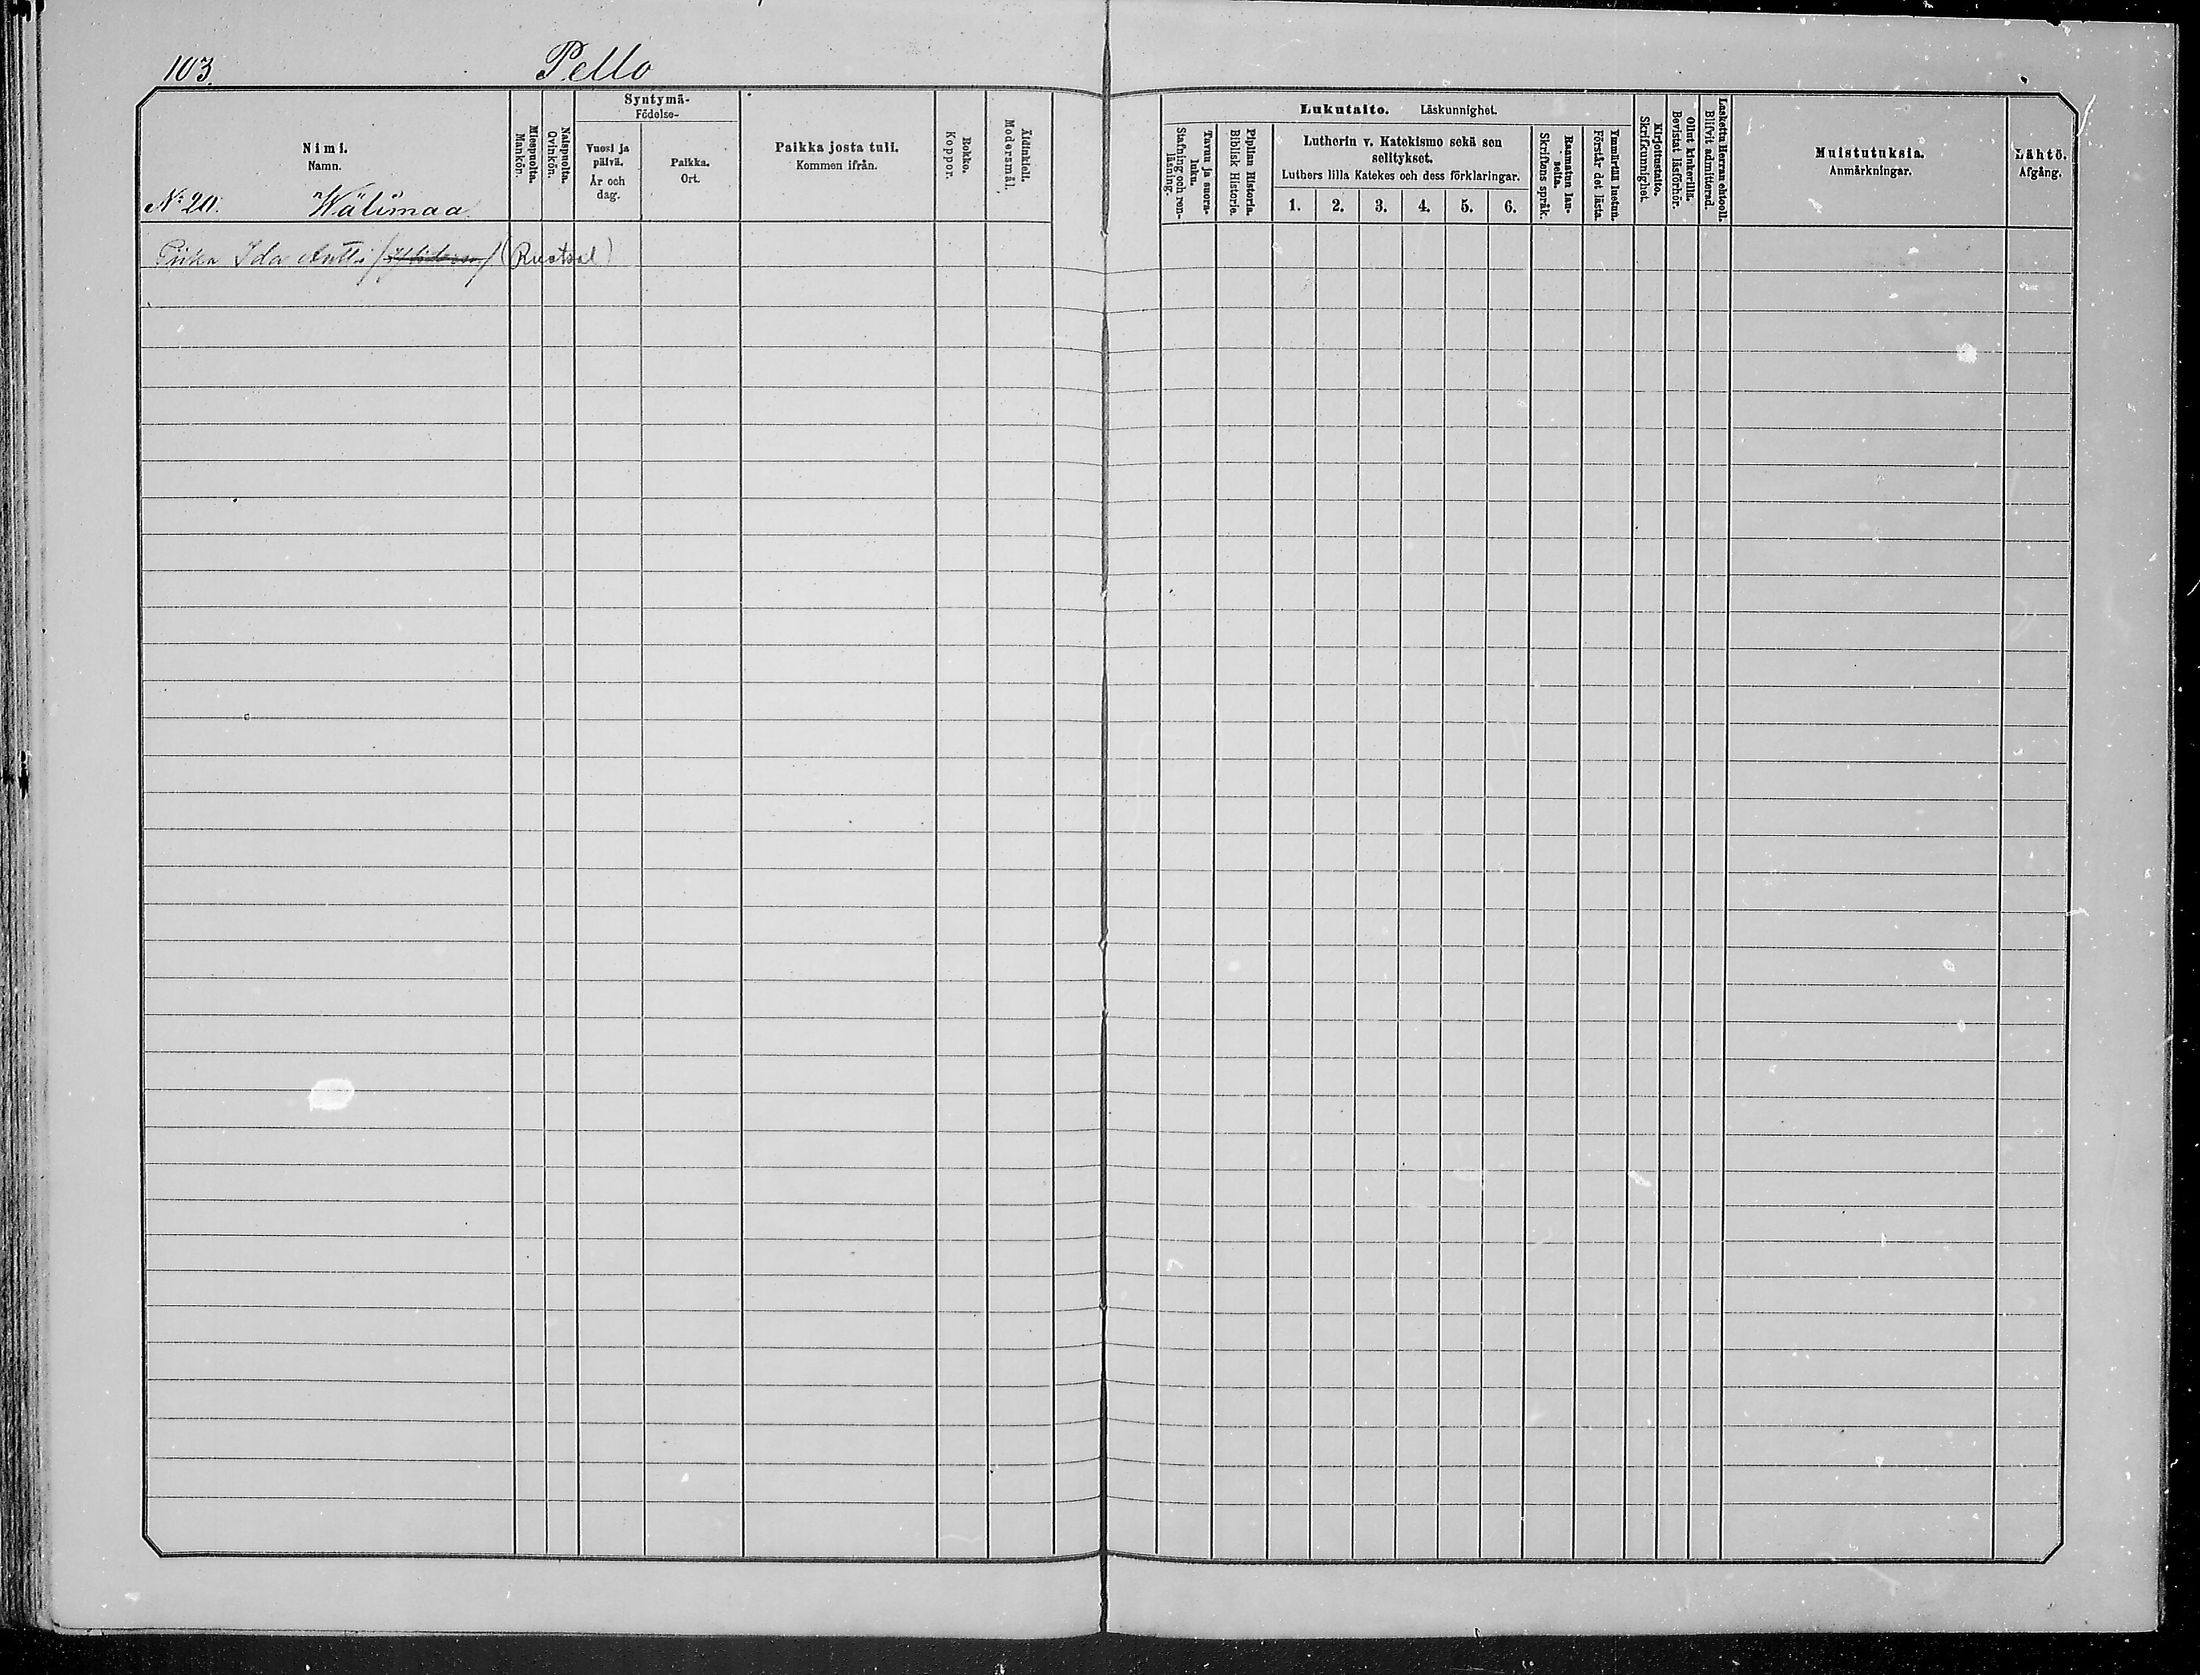 103.
Pello
Syntymä-
Födelse-
Nimi.
Namn.
Miespuolta.
Mankön.
Naispuolta.
Qvinkön.
Vuosi ja
päivä.
År och
dag.
Paikka.
Ort.
Paikka josta tuli.
Kommen ifrån.
Rokko.
Koppor.
Äidinkieli.
Modersmål.
No 20. Wälimaa
Ida Antti (Ruotsal)
Lukutaito. Läskunnighet.
Tavuu ja suora-
luku.
Stafning och ren-
läsning.
Piplian Historia.
Biblisk Historie.
Lutherin v. Katekismo sekä sen
selitykset.
Luthers lilla Katekes och dess förklaringar.
1. 2. 3. 4. 5. 6.
Raamatun lau-
seita.
Skriftens språk.
Ymmärtää luetun.
Förstår det lästa.
Kirjoitustaito.
Skrifkunnighet
Ollut kinkerillä.
Bevistat läsförhör.
Laskettu Herran ehtooll.
Blifvit admitterad.
Muistutuksia.
Anmärkningar.
Lähtö.
Afgång.